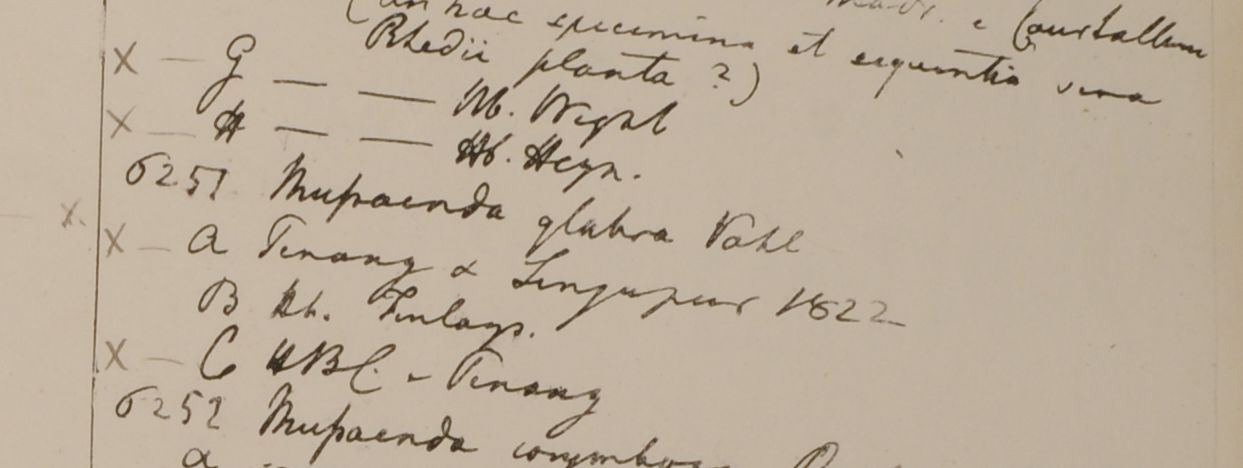 (an hac specimina et sequentia vera
Rhedii planta ?)
X — G — — Hb. Wight
X — H — — Hb. Heyn.
6251 Mussaenda glabra Vahl
X — a Penang & Singapur 1822
B hb. Finlays.
X — C HBC. e Penang
6252 Mussaenda corymbosa
a